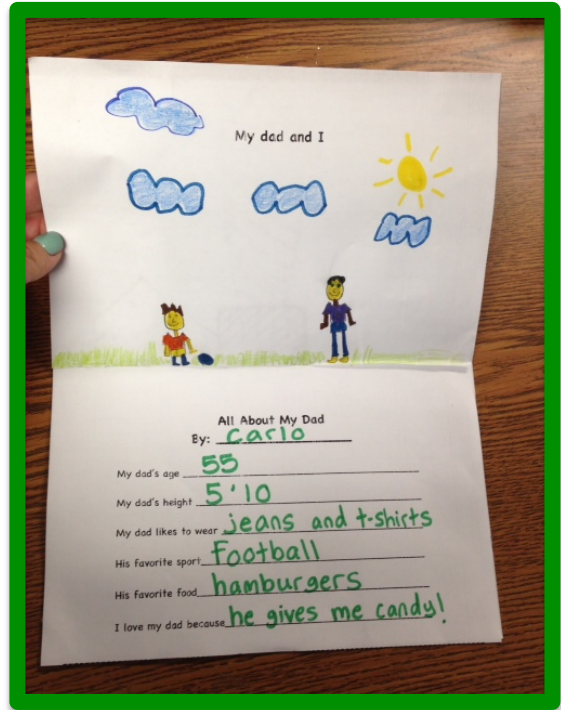 My dad and I
All About My Dad
By: Carlo
My dad's age 55
My dad's height 5'10
My dad likes to wear jeans and t-shirts
His favorite sport Football
His favorite food hamburgers
I love my dad because he gives me candy!